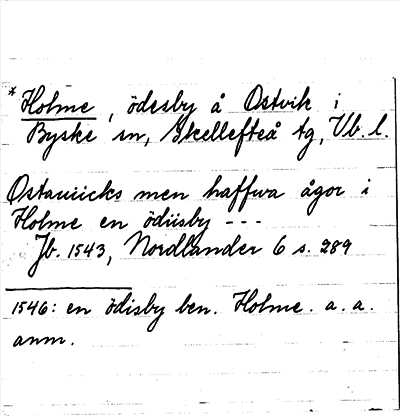 *Holme, ödesby å Ostvik i
Byske sn, Skellefteå tg, Vb. l.
Ostawicks men haffwa ågor i
Holme en ödiisby ---
Jb. 1543, Nordlander 6 s. 289
1546: en ödisby ben. Holme. a. a.
anm.